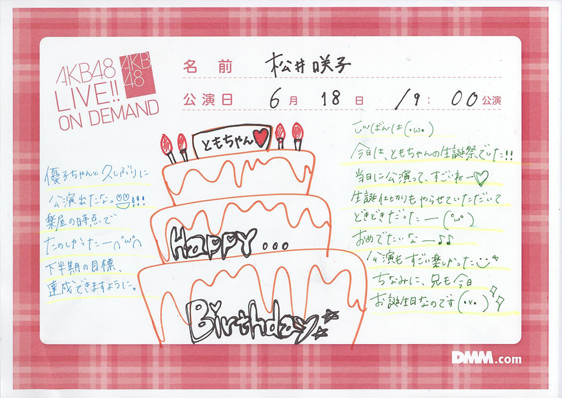 AKB48
LIVE!!
ON DEMAND
AKB
48
名前 松井咲子
公演日 6月 18日 19:00公演
ともちゃん
HAPPY...
Birthday
優子ちゃんと久しぶりに
公演出たな。
楽屋の時点で
たのしかったー
下半期の目標、
達成できますように。
こんばんは(・ω・)
今日は、ともちゃんの生誕祭でした!!
当日に公演って、すごいねー♡
生誕はかりもやらせていただいて
どきどきだったー
おめでたいなー♪♪
公演もすごい楽しかった
ちなみに、兄も今日
お誕生日なのです
DMM.com